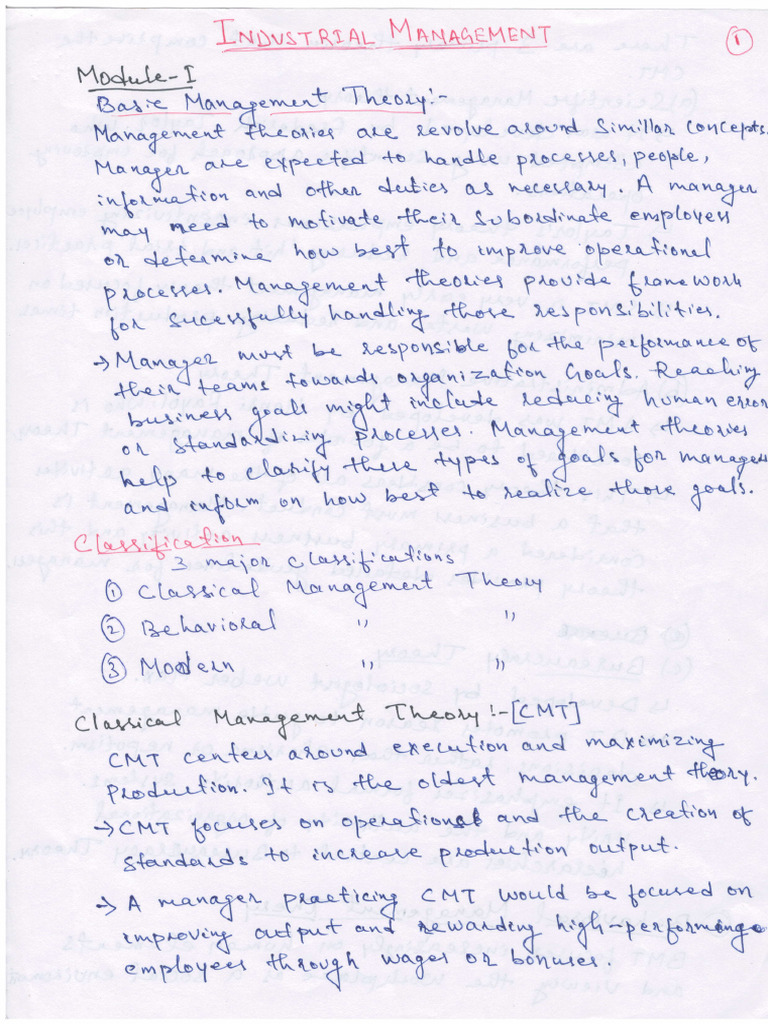 INDUSTRIAL MANAGEMENT
①
Module-I
Basic Management Theory:-
Management theories are revolve around simillar concepts.
Manager are expected to handle processes, people,
information and other duties as necessary. A manager
may need to motivate their subordinate employees
or determine how best to improve operational
processes. Management theories provide framework
for sucessfully handling those responsibilities.
→ Manager must be responsible for the performance of
their teams towards organization Goals. Reaching
business goals might include reducing human error
or standardizing processes. Management theories
help to clarify these types of goals for managers
and inform on how best to realize those goals.
Classification
3 major classifications
① Classical Management Theory
② Behavioral " "
③ Modern " "
Classical Management Theory:-[CMT]
CMT centers around execution and maximizing
production. It is the oldest management theory.
→ CMT focuses on operations and the creation of
standards to increase production output.
→ A manager practicing CMT would be focused on
improving output and rewarding high-performing
employees through wages or bonuses.